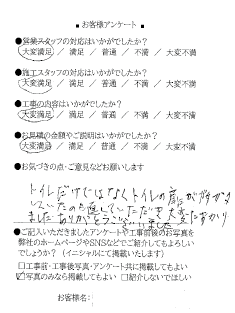 ■ お客様アンケート ■
●営業スタッフの対応はいかがでしたか？
大変満足 ／ 満足 ／ 普通 ／ 不満 ／ 大変不満
●施工スタッフの対応はいかがでしたか？
大変満足 ／ 満足 ／ 普通 ／ 不満 ／ 大変不満
●工事の内容はいかがでしたか？
大変満足 ／ 満足 ／ 普通 ／ 不満 ／ 大変不満
●お見積の金額やご説明はいかがでしたか？
大変満足 ／ 満足 ／ 普通 ／ 不満 ／ 大変不満
●お気づきの点・ご意見などお願いします
トイレだけではなくトイレの扉にガタガタ
していたのも直していただき大変たすかり
ましたありがとうございました
●ご記入いただきましたアンケートや工事前後のお写真を
弊社のホームページやSNSなどでご紹介してもよろしい
でしょうか？（イニシャルにて掲載いたします）
□工事前・工事後写真・アンケート共に掲載してもよい
☑写真のみなら掲載してもよい □紹介しないでほしい
お客様名：